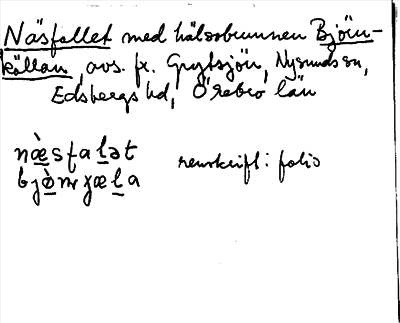 Näsfallet med hälsobrunnen Björn-
källan, avs. fr. Grytsjön, Nysunds sn,
Edsbergs hd, Örebro län
næ̀sfalət
bjø̀nɤæla renskrift: folio